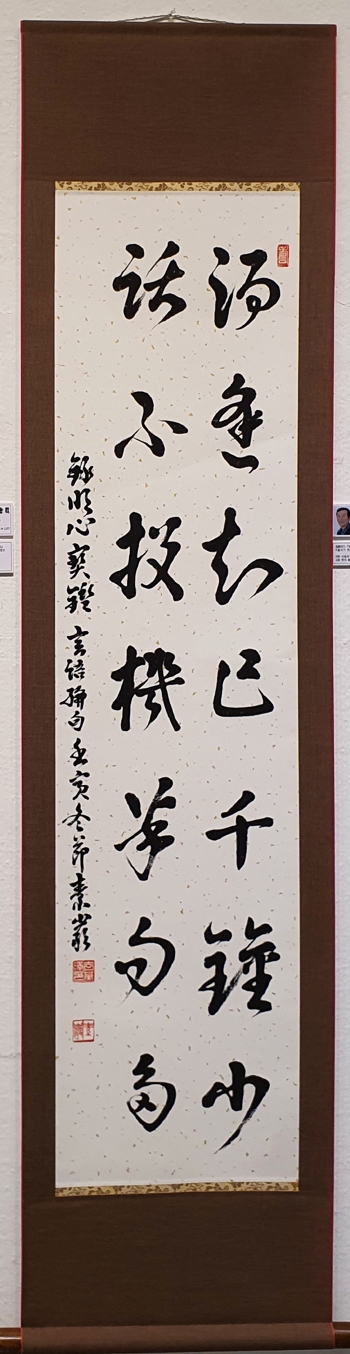 酒逢知己千鍾少
話不投機半句多
錄明心寶鑑 言語篇句 壬寅冬節 素巖